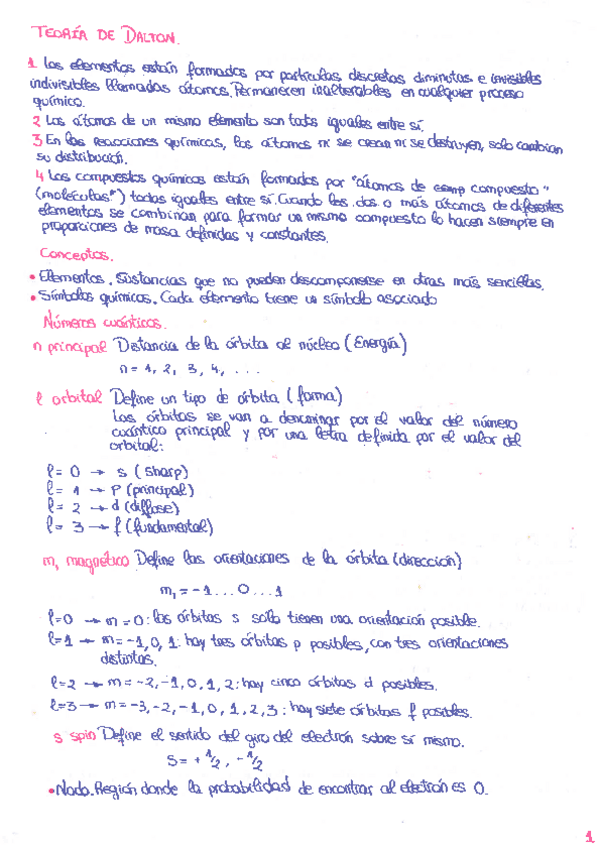 TEORÍA DE DALTON.
1 Los elementos están formados por partículas discretas diminutas e invisibles
indivisibles llamadas átomos. Permanecen inalterables en cualquier proceso
químico.
2 Los átomos de un mismo elemento son todos iguales entre sí.
3 En las reacciones químicas, los átomos ni se crean ni se destruyen, solo cambian
su distribución.
4 Los compuestos químicos están formados por "átomos de comp compuesto"
(moléculas") todas iguales entre sí. Cuando los dos o más átomos de diferentes
elementos se combinan para formar un mismo compuesto lo hacen siempre en
proporciones de masa definidas y constantes.
Conceptos.
• Elementos. Sustancias que no pueden descomponerse en otras más sencillas.
• Símbolos químicos. Cada elemento tiene un símbolo asociado
Números cuánticos.
n principal Distancia de la órbita al núcleo (Energía)
n = 1, 2, 3, 4, ...
l orbital Define un tipo de órbita (forma)
Las órbitas se van a denominar por el valor del número
cuántico principal y por una letra definida por el valor del
orbital:
l= 0 → s (sharp)
l= 1 → p (principal)
l= 2 → d (diffose)
l= 3 → f (fundamental)
m, magnético Define las orientaciones de la órbita (dirección)
m, = -1...0...1
l=0 → m=0: las órbitas s solo tienen una orientación posible.
l=1 → m=-1, 0, 1: hay tres órbitas p posibles, con tres orientaciones
distintas.
l=2 → m=-2, -1, 0, 1, 2: hay cinco órbitas d posibles.
l=3 → m=-3, -2, -1, 0, 1, 2, 3: hay siete órbitas f posibles.
s spin Define el sentido del giro del electrón sobre sí mismo.
S= + 1/2, - 1/2
• Nodo. Región donde la probabilidad de encontrar al electrón es 0.
1